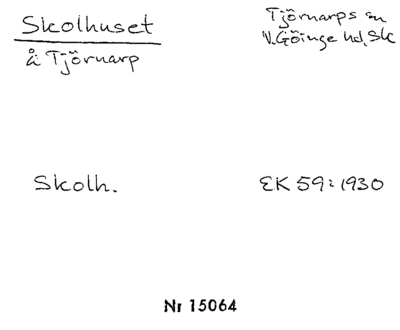 Skolhuset
å Tjörnarp
Tjörnarps sn
V. Göinge hd, Sk
Skolh.
EK 59:1930
Nr 15064